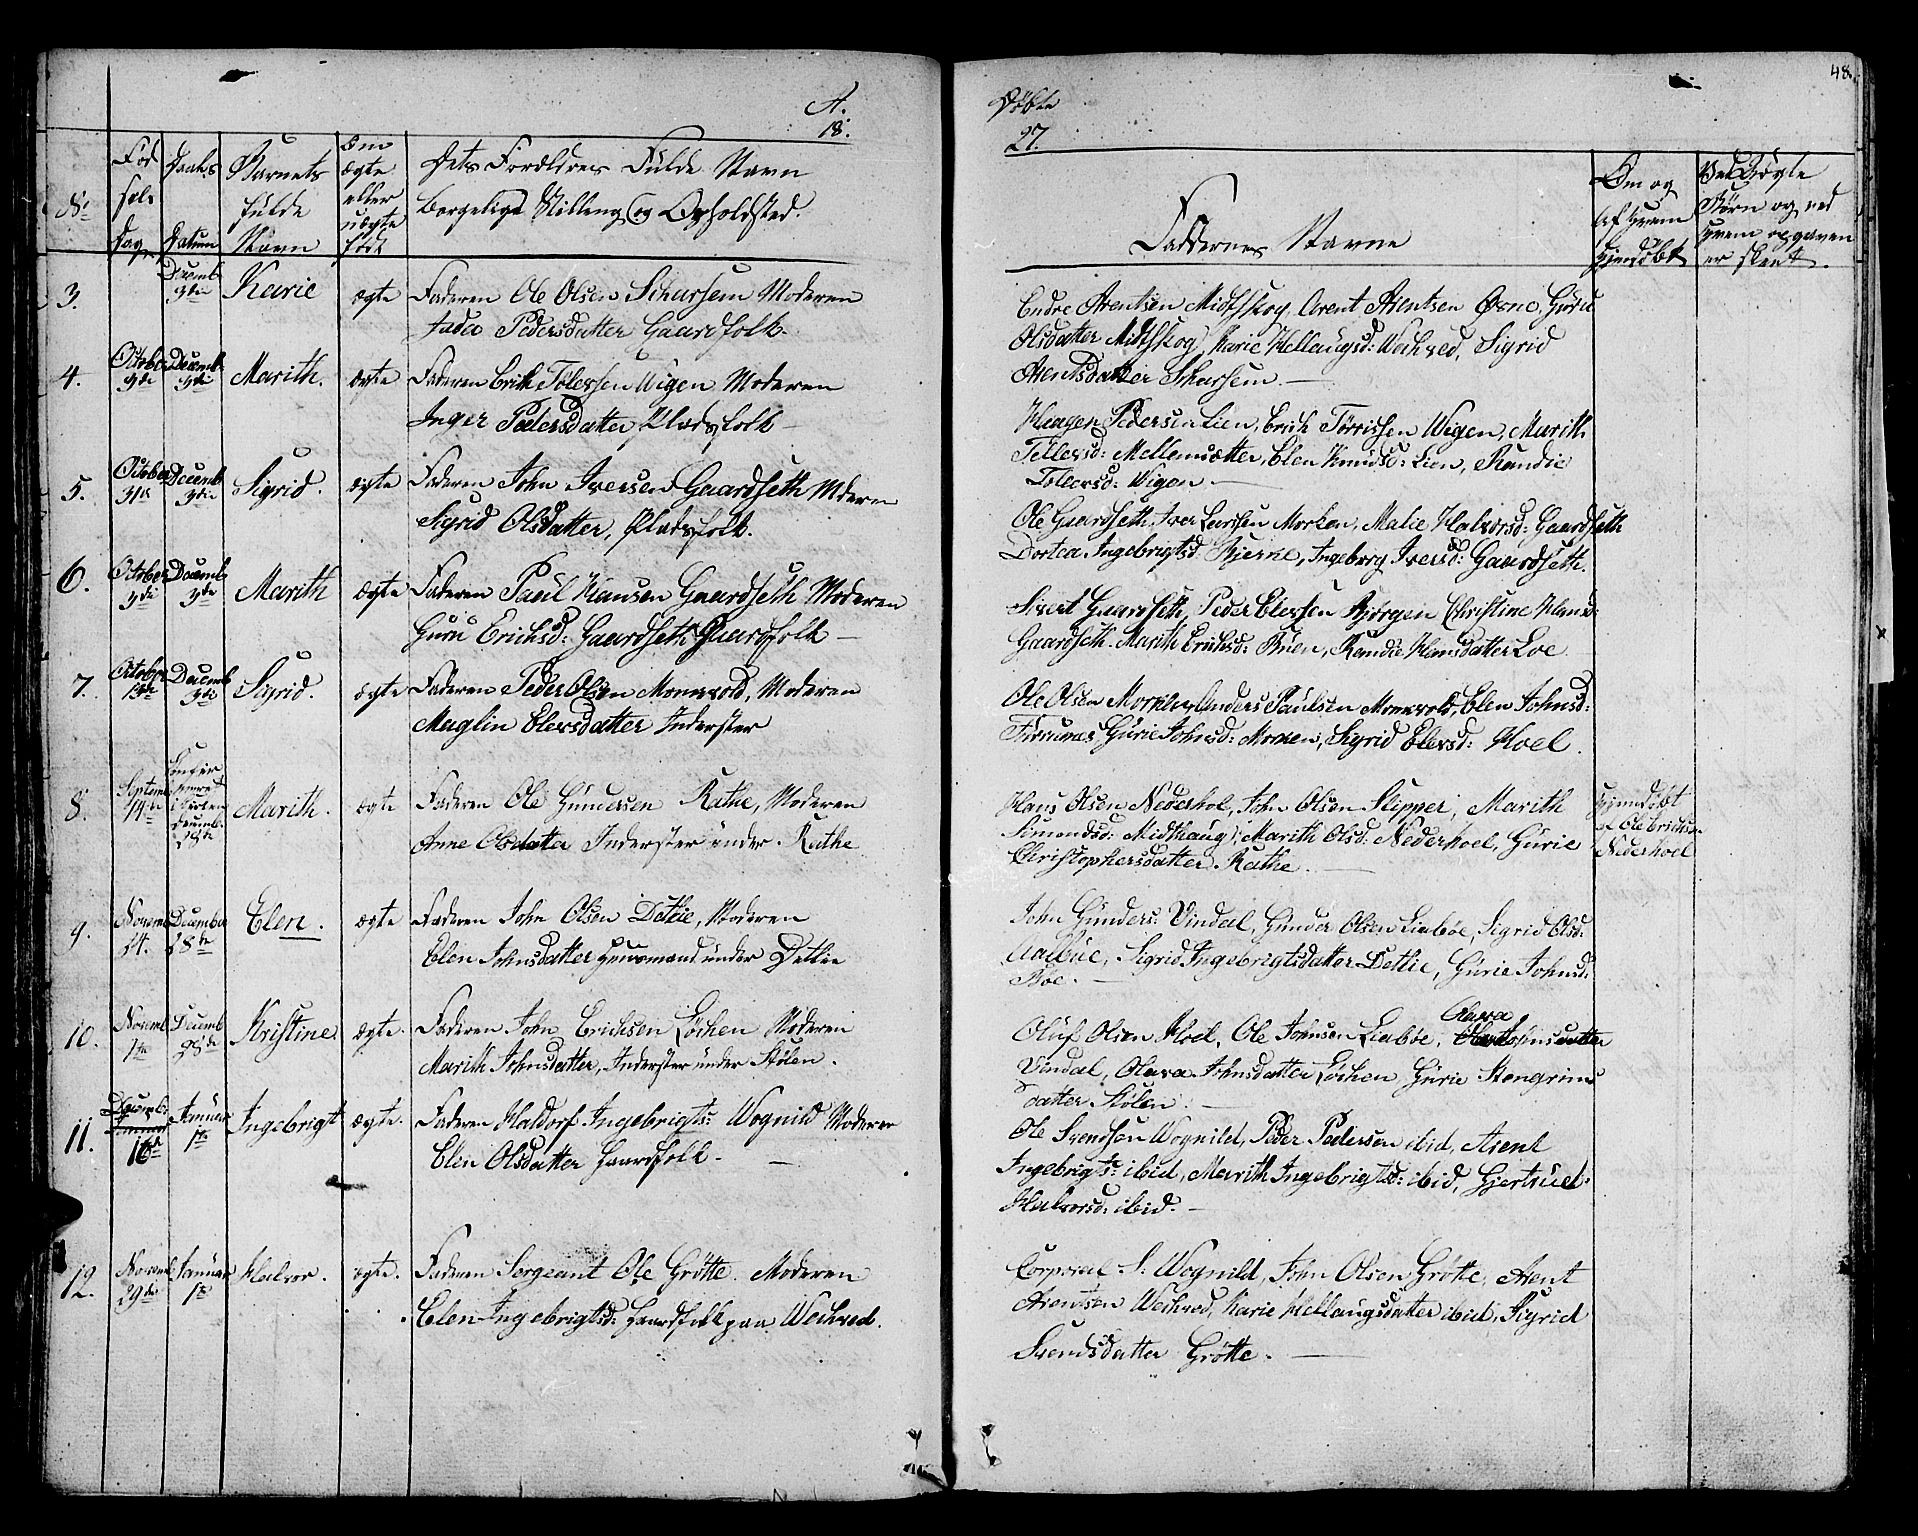 A.
18.
Døbte
27.
48.
No
Fødsels
Dag
Daabs
Datum
Barnets
fulde
Navn
Om
ægte
eller
uægte
født
Dets Forældres Fulde Navn
borgelige Stilling og Opholdsted.
Faddernes Navne
Om og
af hvem
hjemdøbt
Børn og ved
hvem opgaven
er skeet.
3.
Decemb
3die
Karie
ægte
Faderen Ole Olsen Scharsem Moderen
Pedersdatter Gaardfolk.
Endre Arentsen Midtskog, Arent Arentsen Øsne, Guru
Olsdatter Midtskog, Karie Hellaugsd: Wechred, Sigrid
Arentsdatter Scharsem. —
4.
October
Decemb
3die
Marith.
ægte
Faderen Erich Tølefsen Wigen Moderen
Inger Pedersdatter Pladsfolk —
Haagen Pedersen Lien, Erich Tørrissen Wigen, Marith
Tollevsd: Mellemsætter, Elen Knudsd: Lien, Randie
Tollevsd: Wigen —
5.
October
Decemb
3die
Sigrid.
ægte
Faderen John Iversen Gaardseth Moderen
Sigrid Olsdatter, Pladsfolk.
Ole Gaardseth, Iver Larssen Morken, Malie Halvorsd: Gaardseth
Dortea Ingebrigtsd Bjerke, Ingeborg Iversd: Gaardseth.
6.
October
3die
Decemb
3die
Marith
ægte
Faderen Paul Hansen Gaardseth Moderen
Guru Erichsd: Gaardseth Gaardfolk —
Sivert Gaardseth, Peder Elefsen Bjørgen Christine Hansd:
Gaardseth. Marith Erichsd: Buen, Randie Hansdatter Loe
7.
October
13de
Decemb
3die
Sigrid.
ægte
Faderen Peder Olsen Monsvold, Moderen
Maglin Elevsdatter Inderster
Ole Olsen Morken, Anders Paulsen Monsvold, Elen Johnsd:
Furrunes Gurie Johnsd: Morken, Sigrid Elevsd: Hoel.
8.
Septemb
14de
i Kirken
Decemb.
28de
Marith.
ægte
Faderen Ole Gundersen Rathe, Moderen
Anne Olsdatter Inderster under Rathe
Hans Olsen Nederhol, John Olsen Slipper, Marith
Simondsd: Midthaug, Marith Olsd: Nederhoel, Gurie
Christophersdatter Rathe. —
hjemdøbt
af Ole Erichsen
Nederhoel
9.
Novemb
24.
December
28de
Elen.
ægte
Faderen John Olsen Detlie, Moderen
Elen Johnsdatter Huusmand under Detlie
John Gunders: Vindal, Gunder Olsen Liabøe, Sigrid Olsd:
Aalbue, Sigrid Ingebrigtsdatter Detlie, Gurie Johnsd:
Boe. —
10.
Novemb
1te
Decemb
28de
Kristine
ægte.
Faderen John Erichsen Løchen Moderen
Marith Johnsdatter, Inderster under Stølen.
Oluf Olsen Hoel, Ole Johnsen Liabøe, Olava Johnsdatter
Vindal, Olava Johnsdatter Løchen Gurie Stengrims
datter Stølen. —
11.
Decemb:
16de
Januar
1te
Ingebrigt
ægte.
Faderen Haldorf Ingebrigts: Wognild Moderen
Elen Olsdatter Gaardfolk. —
Ole Svendsen Wognild, Peder Pedersen ibid, Arent
Ingebrigts: ibid, Marith Ingebrigtsd: ibid, Gjertrud
Halvorsd: ibid. —
12.
Novemb
29de
Januar
1te
Halvor.
ægte.
Faderen Sergeant Ole Grøtte. Moderen
Elen Ingebrigtsd: Gaardfolk paa Wechred.
Corporal S: Wognild, John Olsen Grøtte, Arent
Arentsen Wechred, Karie Hellaugsdatter ibid, Sigrid
Svendsdatter Grøtte. —